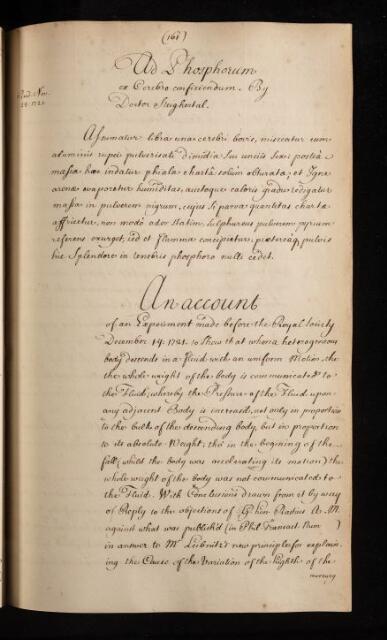 (161)
Read Nov.
Ad Phosphorum
ex Cerebro conficiendum. By
Doctor
Assumatur libra una cerebri bovis, misceatur cum
aluminis rupei pulverisati dimidia seu unciis sex: postea
massa haec indatur phiala charta solum obturata; et Igne
arenae evaporetur humiditas, auctoque caloris gradu redigatur
massa in pulverem nigrum, cujus si parva quantitas charta
affricetur, non modo odor statim, sulphureus pulverem pyrium
referens exurget, sed et flamma conspicietur: praetereaq pulvis
hic Splendore in tenebris phosphoro nulli cedet.
An account
of an Experiment made before the Royal Society
December 14. 1721. to Shew that when a heterogeneous
body descends in a fluid with an uniform Motion, the
the whole weight of the body is communicated to
the Fluid; whereby the Pressure of the Fluid upon
any adjacent Body is increased, not only in proportion
to the bulk of the descending body, but in proportion
to its absolute Weight; tho' in the begining of the
fall (whilst the body was accelerating its motion) the
whole weight of the body was not communicated to
the Fluid. With Conclusions drawn from it by way
of Reply to the objections of A. M.
against what was publish'd (in Phil. Transact. Num )
in answer to Mr Leibnitz's new principles for explain-
ing the Cause of the Variation of the Highth of the
mercury